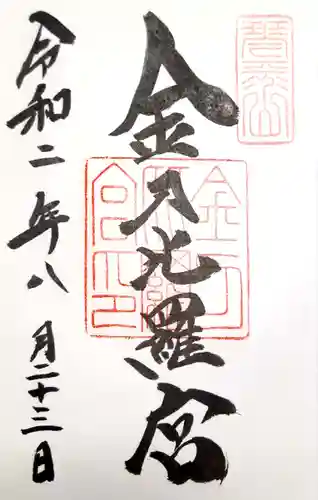 金刀比羅宮
金刀
比羅
宮印
令和二年八月二十三日